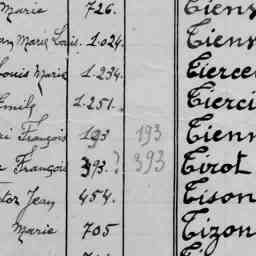 Marie 726. Tiens
Marie Louis. 1.024. Tienn
Louis Marie 1.234. Tierce
Emile 1.251. Tierci
François 193 193 Tienn
François 393.? 393 Tirot
Jean 454. Tison
Marie 705 Tizon